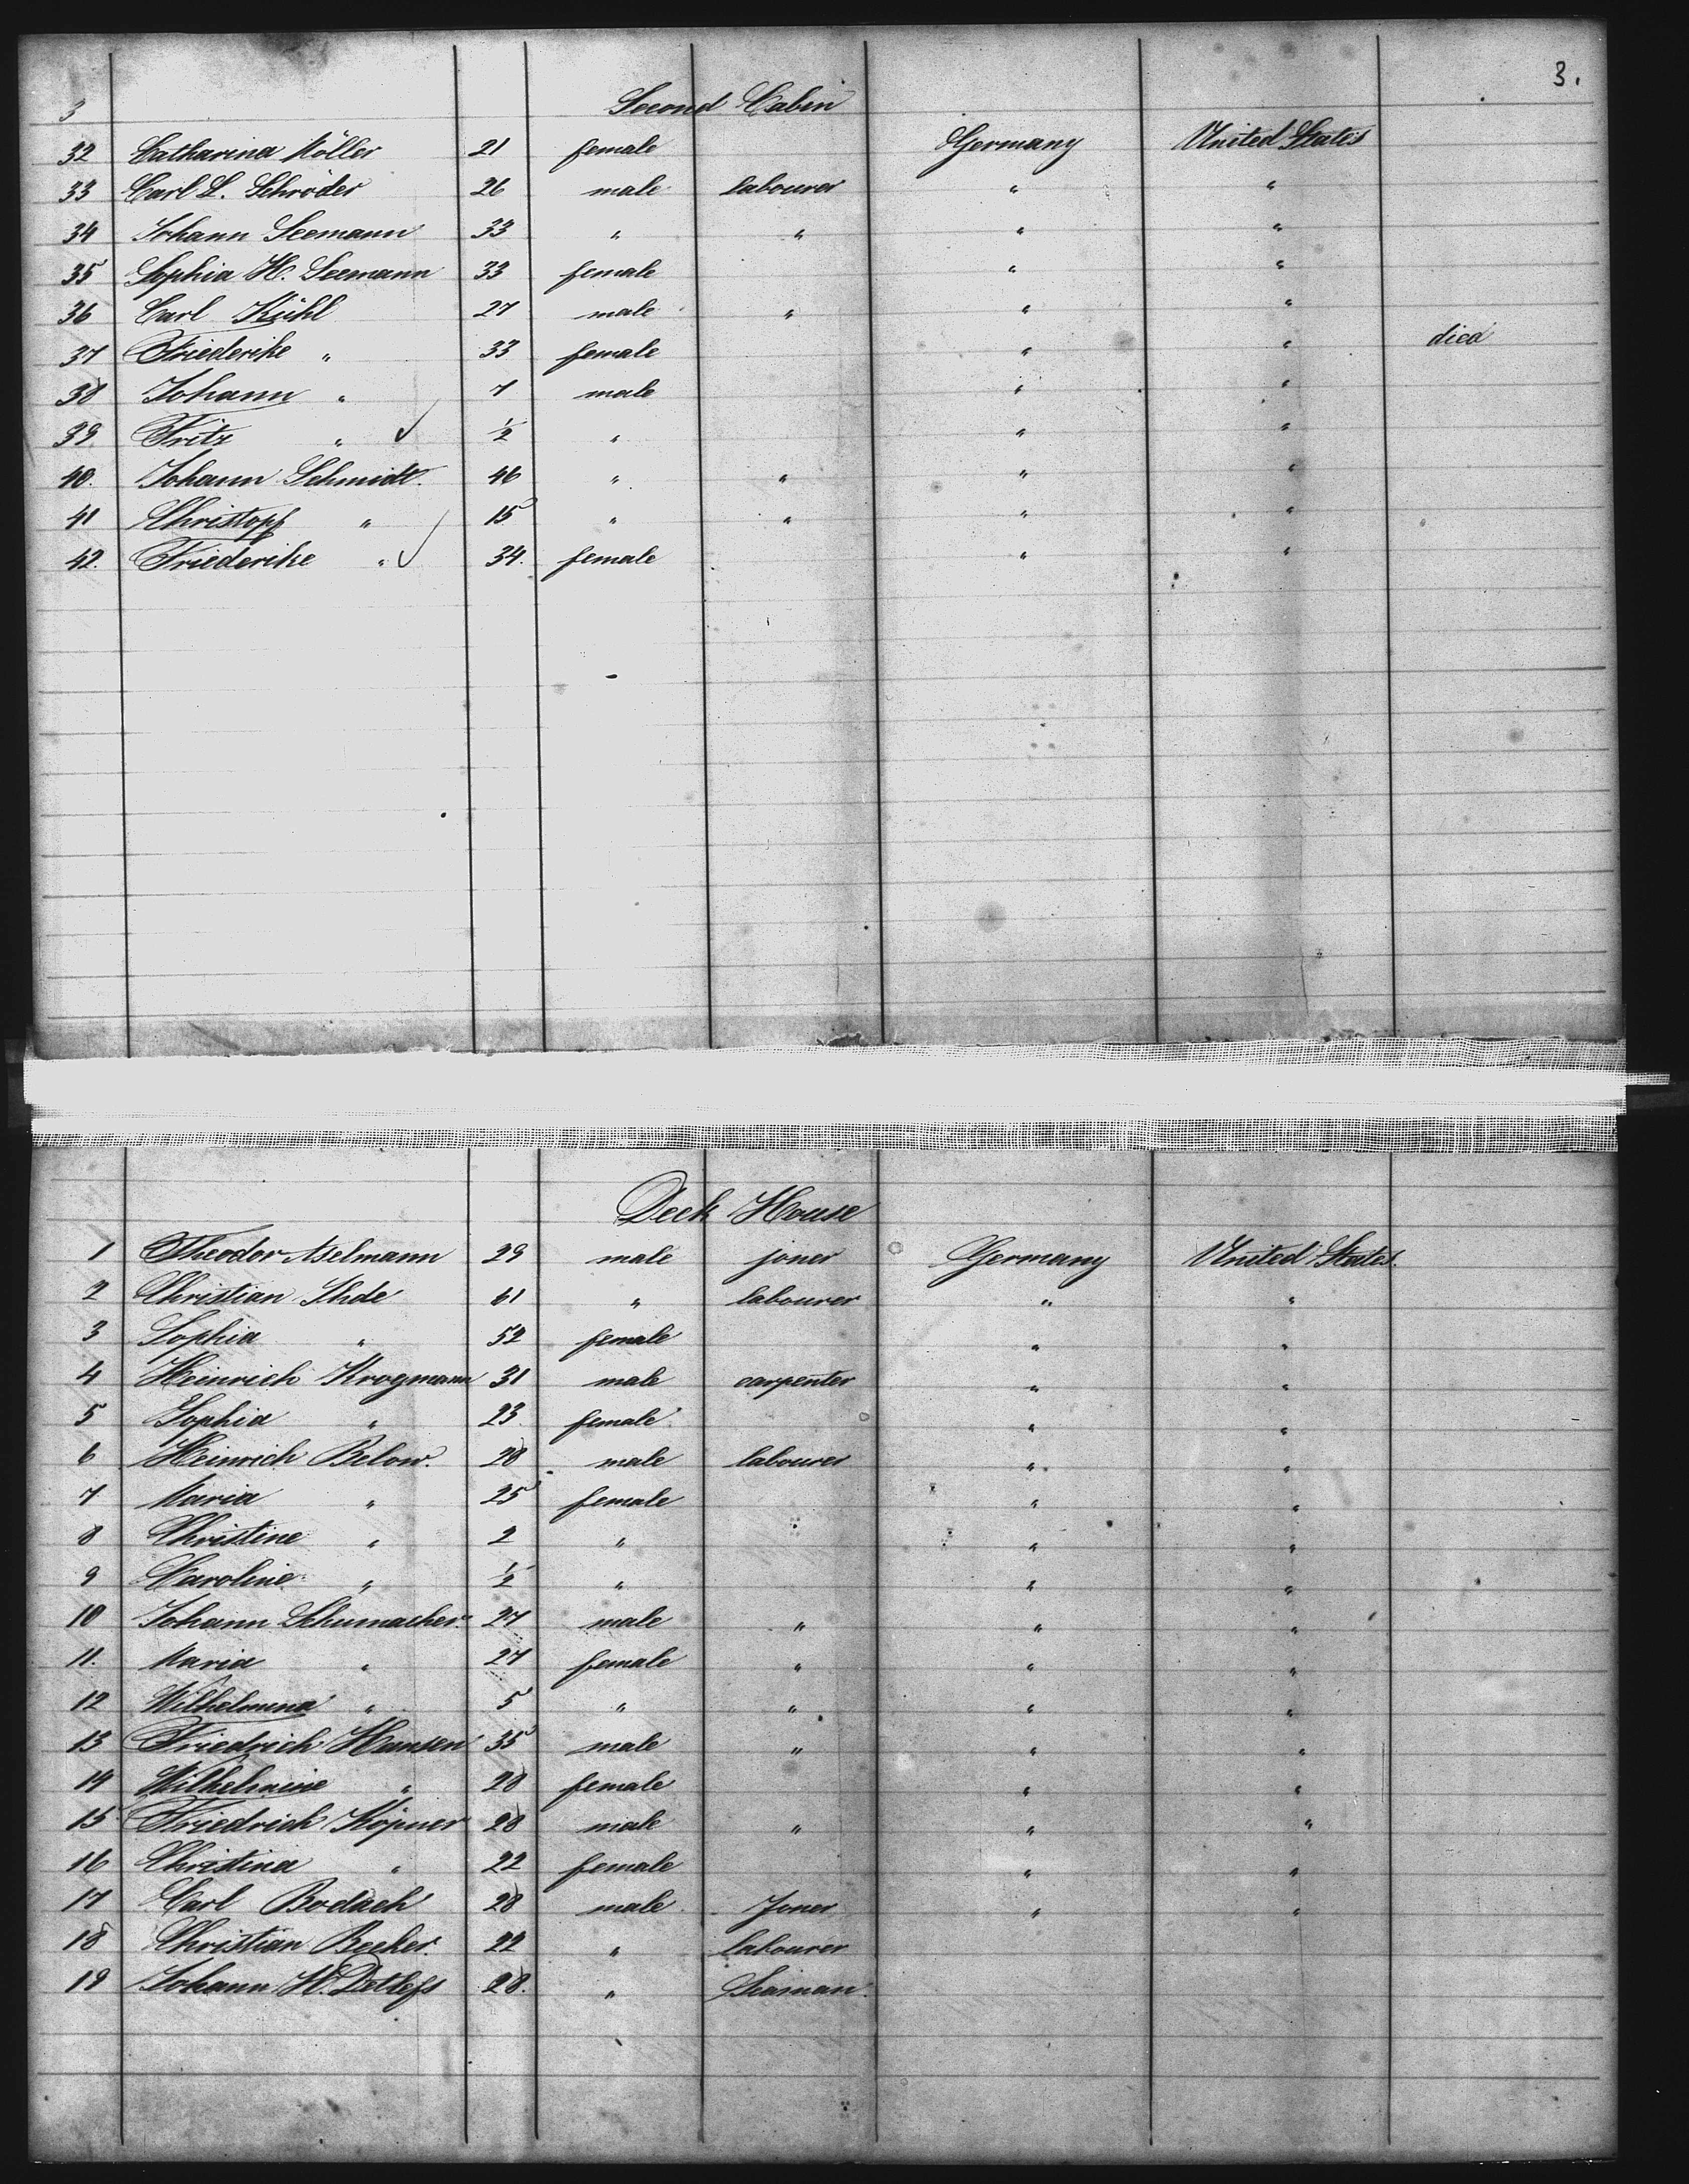 3.
3 Second Cabin
32 Catharina Möller 21 female Germany United States
33 Carl L. Schröder 26 male labourer " "
34 Johann Seemann 33 " " " "
35 Sophia H. Seemann 33 female " "
36 Carl Kühl 27 male " " "
37 Friederike " 33 female " " died
38 Johann " 7 male " "
39 Fritz " ✓ ½ " " "
40. Johann Schmidt. 46 " " " "
41 Christopf " 15 " " " "
42. Friederike " ✓ 34. female " "
Deck House
1 Theodor Aselmann 29 male joner Germany United States.
2 Christian Ihde 61 " labourer " "
3 Sophia " 52 female " "
4 Heinrich Krogmann 31 male carpenter " "
5 Sophia " 23. female " "
6 Heinrich Below. 28 male labourer " "
7 Maria " 25 female " "
8 Christine " 2 " " "
9 Caroline " ½ " " "
10 Johann Schumacher. 27 male " " "
11. Maria " 27 female " " "
12 Wilhelmina " 5 " " " "
13 Friedrich Hansen 35 male " " "
14 Wilhelmine " 28 female " "
15 Friedrich Köpner 28 male " " "
16 Christina " 22 female " "
17 Carl Bodach 28 male Joner " "
18 Christian Becker. 22 " labourer
19 Johann H. Detlefs 28. " Seaman.